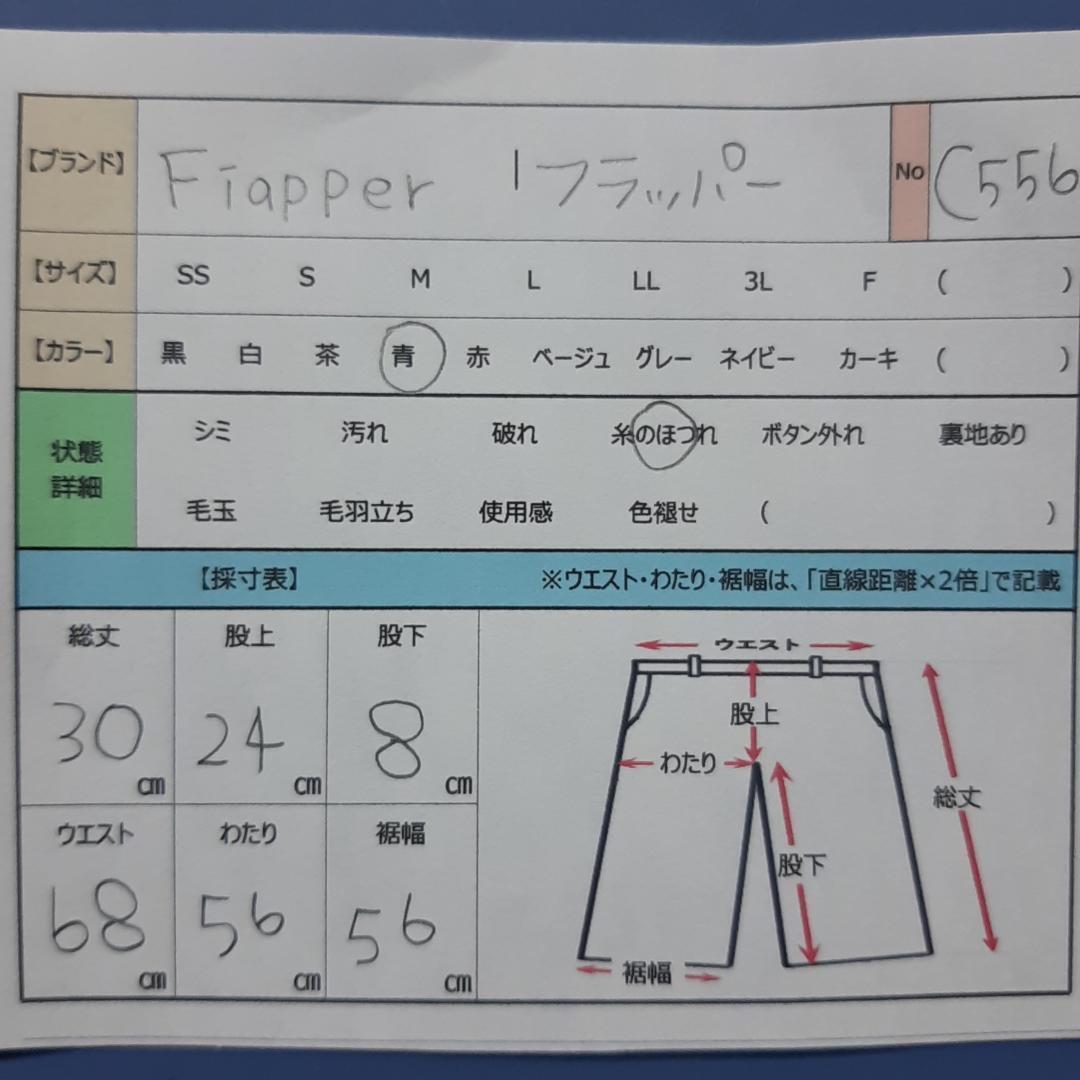 【ブランド】 Fiapper | フラッパー No (556
【サイズ】 SS S M L LL 3L F ( )
【カラー】 黒 白 茶 青 赤 ベージュ グレー ネイビー カーキ ( )
状態
詳細
シミ 汚れ 破れ 糸のほつれ ボタン外れ 裏地あり
毛玉 毛羽立ち 使用感 色褪せ ( )
【採寸表】 ※ウエスト・わたり・裾幅は、「直線距離×2倍」で記載
総丈 股上 股下
30 cm 24 cm 8 cm
ウエスト わたり 裾幅
68 cm 56 cm 56 cm
ウエスト
股上
わたり
総丈
股下
裾幅